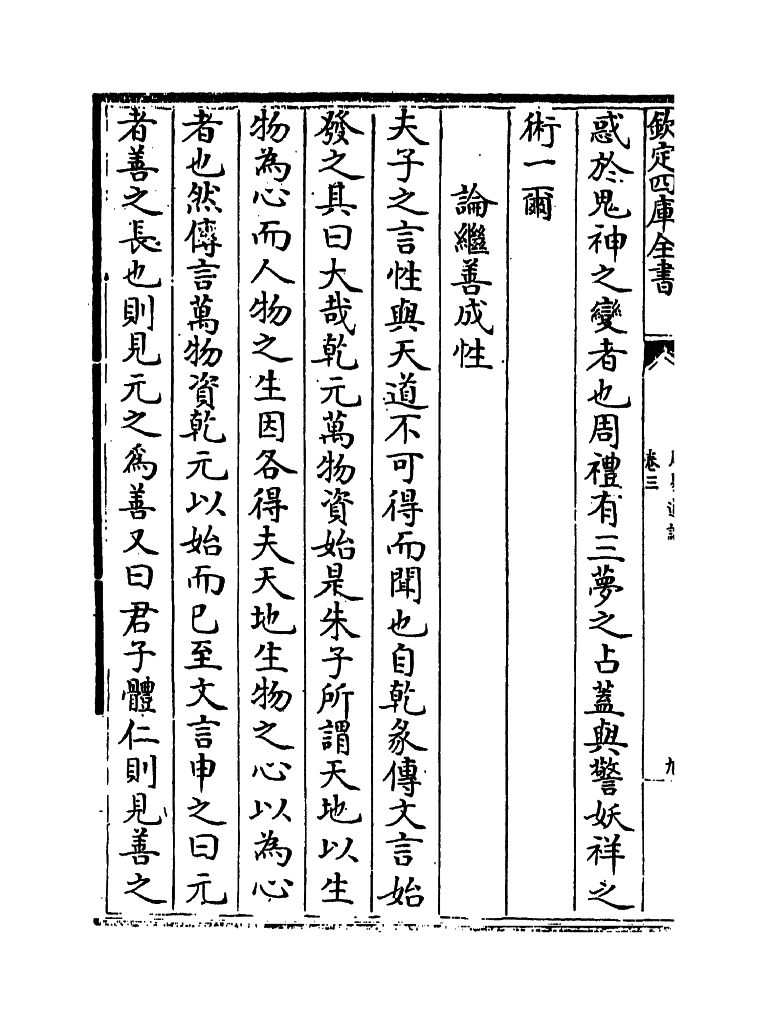 欽定四庫全書
卷三
惑於鬼神之變者也周禮有三夢之占蓋與警妖祥之
術一爾
論繼善成性
夫子之言性與天道不可得而聞也自乾彖傳文言始
發之其曰大哉乾元萬物資始是朱子所謂天地以生
物為心而人物之生因各得夫天地生物之心以為心
者也然傳言萬物資乾元以始而已至文言申之曰元
者善之長也則見元之爲善又曰君子體仁則見善之